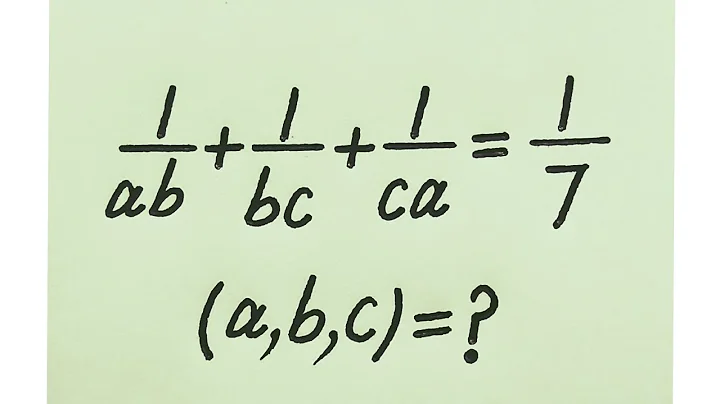 1/ab + 1/bc + 1/ca = 1/7
(a,b,c)=?